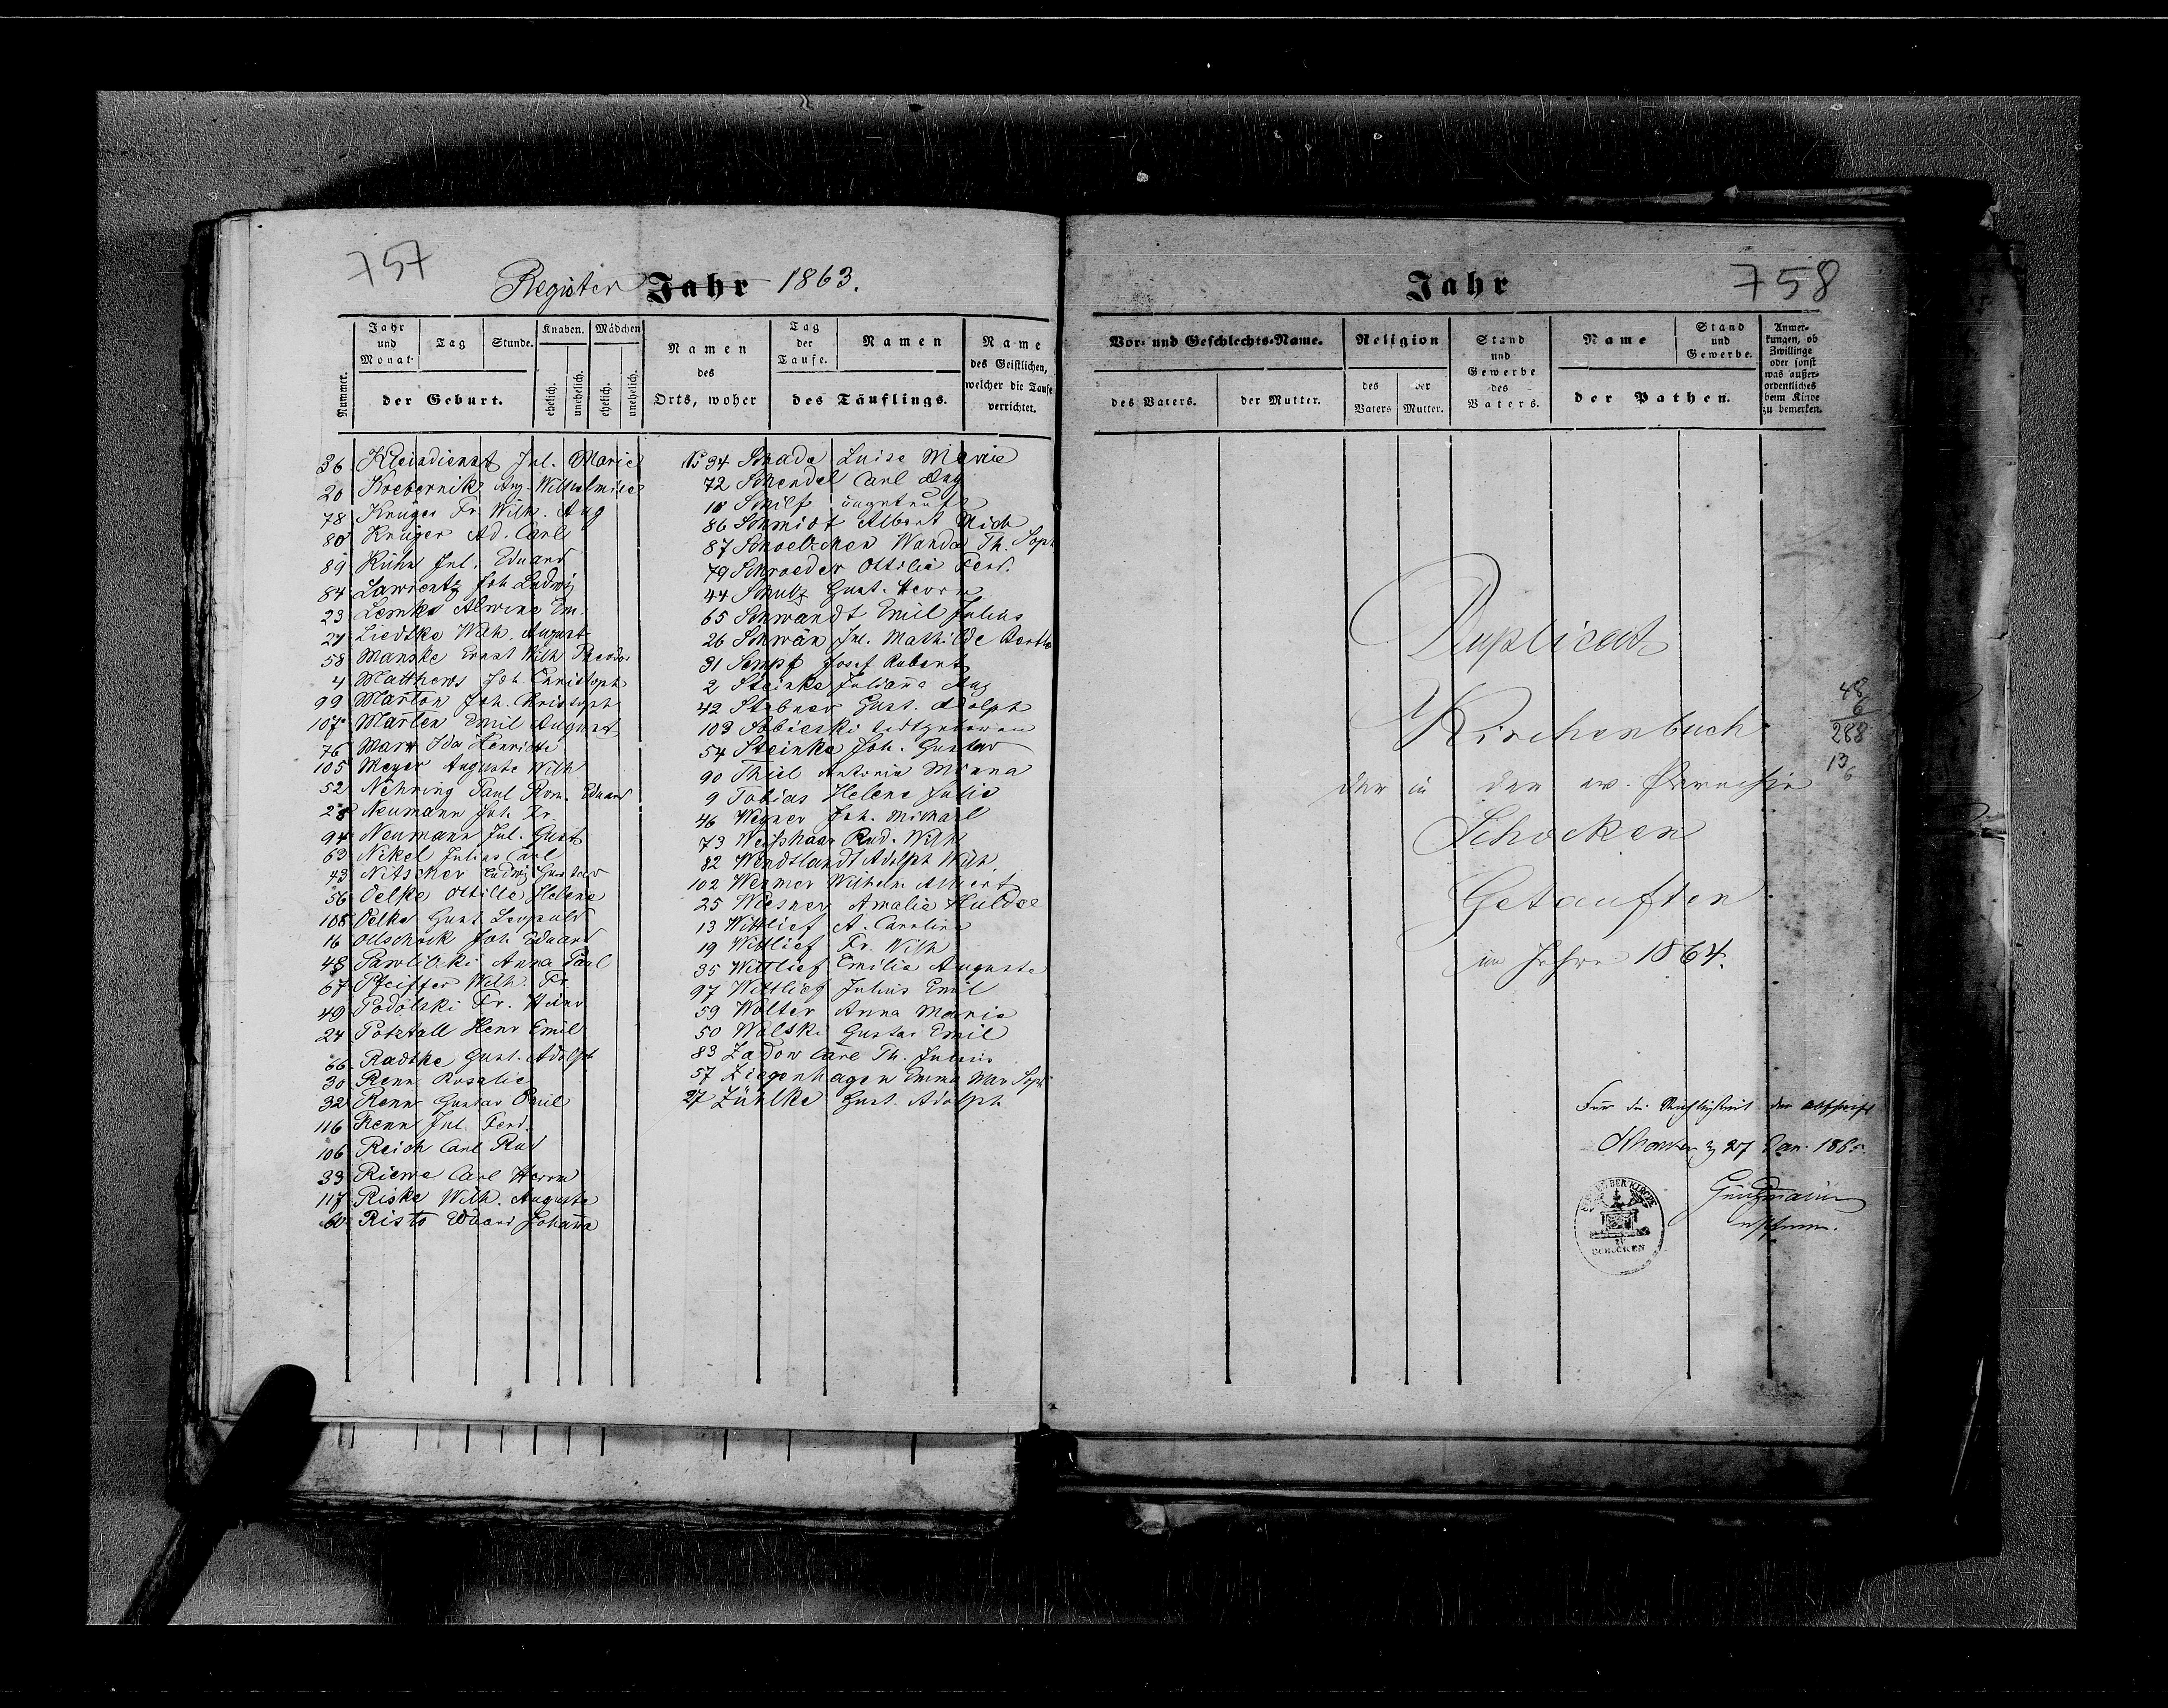 757
Register Jahr 1863.
Nummer.
Jahr und Monat.
Tag
Stunde.
der Geburt.
Knaben.
ehelich.
unehelich.
Mädchen
ehelich.
unehelich.
Namen des Orts, woher
Tag der Taufe.
Namen
des Täuflings.
Name des Geistlichen, welcher die Taufe verrichtet.
36 Kleindienst Jul. Marie
20 Koebernik Aug. Wilhelmine
78 Krüger Fr. Wilh. Aug
80 Krüger Ad. Carl
89 Kühn Jul. Eduard
84 Lawrentz Joh Ludwig
23 Lemke Alwine Em.
21 Liedtke Wilh. August
58 Manske Ernst Wilh Theodor
4 Matthews Joh Christoph
99 Marton Joh. Christoph
107 Marten Emil August
76 Marx Ida Henriette
105 Meyer Auguste Wilh
52 Nehring Paul Rom. Eduard
28 Neumann Joh. Fr.
94 Neumann Jul. Gust
63 Nikel Julius Carl
43 Nitscker Ludwig Gustav
56 Oelke Ottilie Helene
108 Oelke Gust Leopold
16 Ollschock Joh Eduard
48 Pawlitzki Anna Paul
67 Pfeiffer Wilh. Fr.
49 Podolski Fr. Heinr
24 Potztall Henr Emil
66 Radtke Gust. Adolph
30 Renn Rosalie
32 Renn Gustav Emil
116 Renn Jul Ferd.
106 Reich Carl Rud
33 Riewe Carl Herrm
117 Riske Wilh. Auguste
60 Risto Eduard Johanna
34 Schade Luise Marie
72 Schendel Carl Aug
10 Schilf ungetauft
86 Schmidt Albert Mich
87 Schoelzchen Wanda Th. Soph
79 Schroeder Ottilie Ferd.
44 Schulz Gust. Herrm
65 Schwandt Emil Julius
26 Schwän Jul. Mathilde Berth
31 Sempf Josef Robert
2 Steinke Julianna Aug
42 Stebner Gust. Adolph
103 Sobieski todtgeboren
54 Steinke Joh. Gustav
90 Thiel Antonie Minna
9 Tobias Helene Julie
46 Wegner Joh. Michael
73 Weisshaar Rud. Wilh
82 Wendtlandt Adolph Wilh.
102 Wermer Wilhelm Albert
25 Wiesner Amalie Hulda
13 Wittlief A. Caroline
19 Wittlief Fr. Wilh
35 Wittlief Emilie Auguste
97 Wittlief Julius Emil
59 Wolter Anna Marie
50 Wolski Gustav Emil
83 Zadow Carl Th. Julius
57 Ziegenhagen Emma Mar Soph
27 Zühlke Gust. Adolph
Jahr
758
Vor- und Geschlechts-Name.
des Vaters.
der Mutter.
Religion
des Vaters
der Mutter.
Stand und Gewerbe des Vaters.
Name
Stand und Gewerbe.
der Pathen.
Anmerkungen, ob Zwillinge oder sonst was außerordentliches beim Kinde zu bemerken.
Duplicat
Kirchenbuch
der in der ev. Parochie
Schocken
Getauften
im Jahre 1864.
48
6
288
13
6
Für die Richtigkeit der Abschrift
Schocken 27 Jan. 1865.
DER KIRCHE
ZU
SCHOCKEN